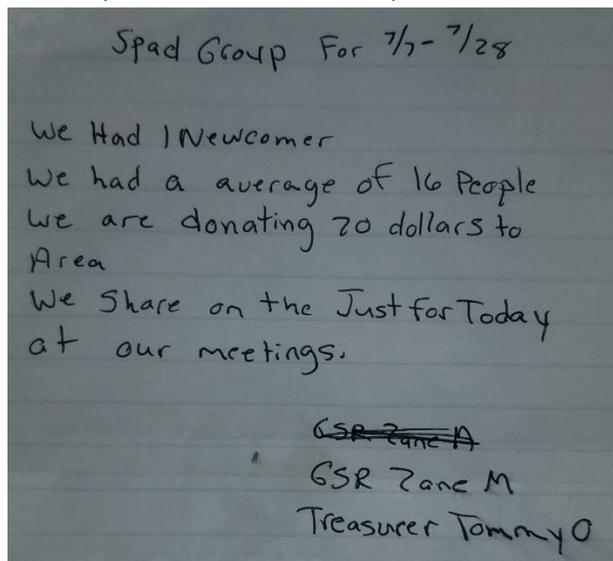 Spad Group For 7/7 - 7/28
We Had 1 Newcomer
We had a average of 16 People
we are donating 20 dollars to
Area
We Share on the Just for Today
at our meetings.
GSR Zane A
GSR Zane M
Treasurer Tommy O